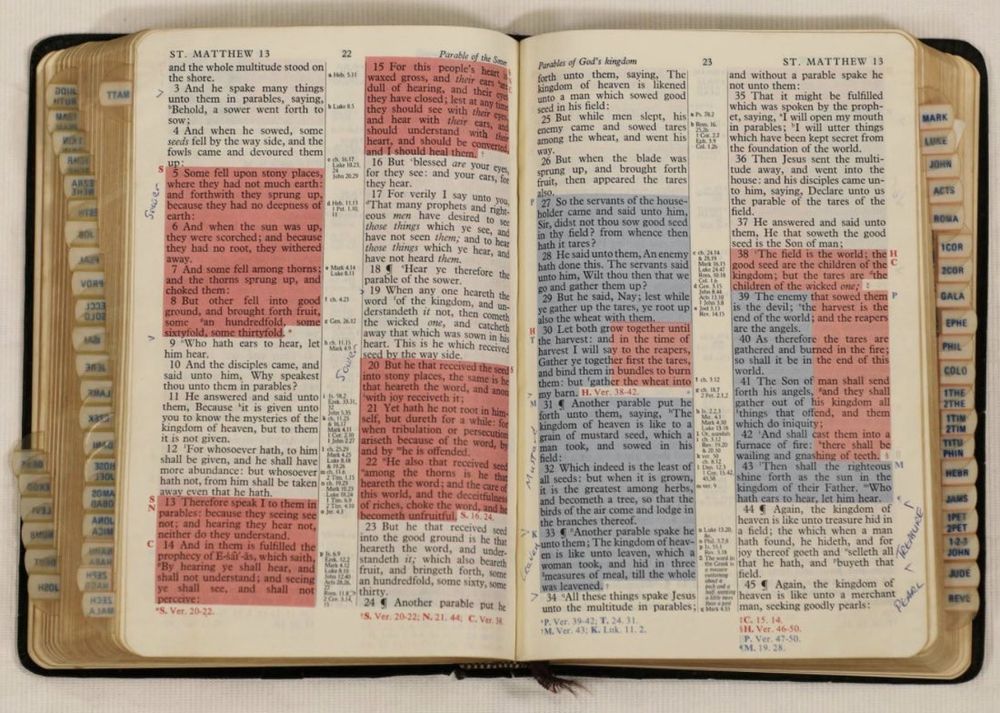 ST. MATTHEW 13
22
Parable of the Sower
and the whole multitude stood on
the shore.
3 And he spake many things
unto them in parables, saying,
Behold, a sower went forth to
sow;
4 And when he sowed, some
seeds fell by the way side, and the
fowls came and devoured them
up:
5 Some fell upon stony places,
where they had not much earth:
and forthwith they sprung up,
because they had no deepness of
earth:
6 And when the sun was up,
they were scorched; and because
they had no root, they withered
away.
7 And some fell among thorns;
and the thorns sprung up, and
choked them:
8 But other fell into good
ground, and brought forth fruit,
some an hundredfold, some
sixtyfold, some thirtyfold.
9 Who hath ears to hear, let
him hear.
10 And the disciples came, and
said unto him, Why speakest
thou unto them in parables?
11 He answered and said unto
them, Because it is given unto
you to know the mysteries of the
kingdom of heaven, but to them
it is not given.
12 For whosoever hath, to him
shall be given, and he shall have
more abundance: but whosoever
hath not, from him shall be taken
away even that he hath.
13 Therefore speak I to them in
parables: because they seeing see
not; and hearing they hear not,
neither do they understand.
14 And in them is fulfilled the
prophecy of E-sai-as, which saith,
By hearing ye shall hear, and
shall not understand; and seeing
ye shall see, and shall not
perceive:
*S. Ver. 20-22.
15 For this people's heart is
waxed gross, and their ears are
dull of hearing, and their eyes
they have closed; lest at any time
they should see with their eyes,
and hear with their ears, and
should understand with their
heart, and should be converted,
and I should heal them.
16 But blessed are your eyes,
for they see: and your ears, for
they hear.
17 For verily I say unto you,
That many prophets and right-
eous men have desired to see
those things which ye see, and
have not seen them; and to hear
those things which ye hear, and
have not heard them.
18 ¶ Hear ye therefore the
parable of the sower.
19 When any one heareth the
word of the kingdom, and un-
derstandeth it not, then cometh
the wicked one, and catcheth
away that which was sown in his
heart. This is he which received
seed by the way side.
20 But he that received the seed
into stony places, the same is he
that heareth the word, and anon
with joy receiveth it;
21 Yet hath he not root in him-
self, but dureth for a while: for
when tribulation or persecution
ariseth because of the word, by
and by he is offended.
22 He also that received seed
among the thorns is he that
heareth the word; and the care of
this world, and the deceitfulness
of riches, choke the word, and he
becometh unfruitful. S. 16. 24.
23 But he that received seed
into the good ground is he that
heareth the word, and under-
standeth it; which also beareth
fruit, and bringeth forth, some
an hundredfold, some sixty, some
thirty.
24 ¶ Another parable put he
†S. Ver. 20-22; N. 21. 44; C. Ver. 38.
Sower
Sower
Parables of God's kingdom
23
ST. MATTHEW 13
forth unto them, saying, The
kingdom of heaven is likened
unto a man which sowed good
seed in his field:
25 But while men slept, his
enemy came and sowed tares
among the wheat, and went his
way.
26 But when the blade was
sprung up, and brought forth
fruit, then appeared the tares
also.
27 So the servants of the house-
holder came and said unto him,
Sir, didst not thou sow good seed
in thy field? from whence then
hath it tares?
28 He said unto them, An enemy
hath done this. The servants said
unto him, Wilt thou then that we
go and gather them up?
29 But he said, Nay; lest while
ye gather up the tares, ye root up
also the wheat with them.
30 Let both grow together until
the harvest: and in the time of
harvest I will say to the reapers,
Gather ye together first the tares,
and bind them in bundles to burn
them: but gather the wheat into
my barn. H. Ver. 38-42.
31 ¶ Another parable put he
forth unto them, saying, The
kingdom of heaven is like to a
grain of mustard seed, which a
man took, and sowed in his
field:
32 Which indeed is the least of
all seeds: but when it is grown,
it is the greatest among herbs,
and becometh a tree, so that the
birds of the air come and lodge in
the branches thereof.
33 ¶ Another parable spake he
unto them; The kingdom of heav-
en is like unto leaven, which a
woman took, and hid in three
measures of meal, till the whole
was leavened.
34 All these things spake Jesus
unto the multitude in parables;
*P. Ver. 39-42; T. 24. 31.
†M. Ver. 43; K. Luk. 11. 2.
and without a parable spake he
not unto them:
35 That it might be fulfilled
which was spoken by the proph-
et, saying, I will open my mouth
in parables; I will utter things
which have been kept secret from
the foundation of the world.
36 Then Jesus sent the multi-
tude away, and went into the
house: and his disciples came un-
to him, saying, Declare unto us
the parable of the tares of the
field.
37 He answered and said unto
them, He that soweth the good
seed is the Son of man;
38 The field is the world; the
good seed are the children of the
kingdom; but the tares are the
children of the wicked one;
39 The enemy that sowed them
is the devil; the harvest is the
end of the world; and the reapers
are the angels.
40 As therefore the tares are
gathered and burned in the fire;
so shall it be in the end of this
world.
41 The Son of man shall send
forth his angels, and they shall
gather out of his kingdom all
things that offend, and them
which do iniquity;
42 And shall cast them into a
furnace of fire: there shall be
wailing and gnashing of teeth.
43 Then shall the righteous
shine forth as the sun in the
kingdom of their Father. Who
hath ears to hear, let him hear.
44 ¶ Again, the kingdom of
heaven is like unto treasure hid in
a field; the which when a man
hath found, he hideth, and for
joy thereof goeth and selleth all
that he hath, and buyeth that
field.
45 ¶ Again, the kingdom of
heaven is like unto a merchant
man, seeking goodly pearls:
‡C. 15. 14.
§H. Ver. 46-50.
P. Ver. 47-50.
M. 19. 28.
TREASURE
PEARL
MATT
MARK
LUKE
JOHN
ACTS
ROMA
1COR
2COR
GALA
EPHE
PHIL
COLO
1THE
2THE
1TIM
2TIM
TITU
PHIN
HEBR
JAMS
1PET
2PET
1-2-3
JOHN
JUDE
REVE